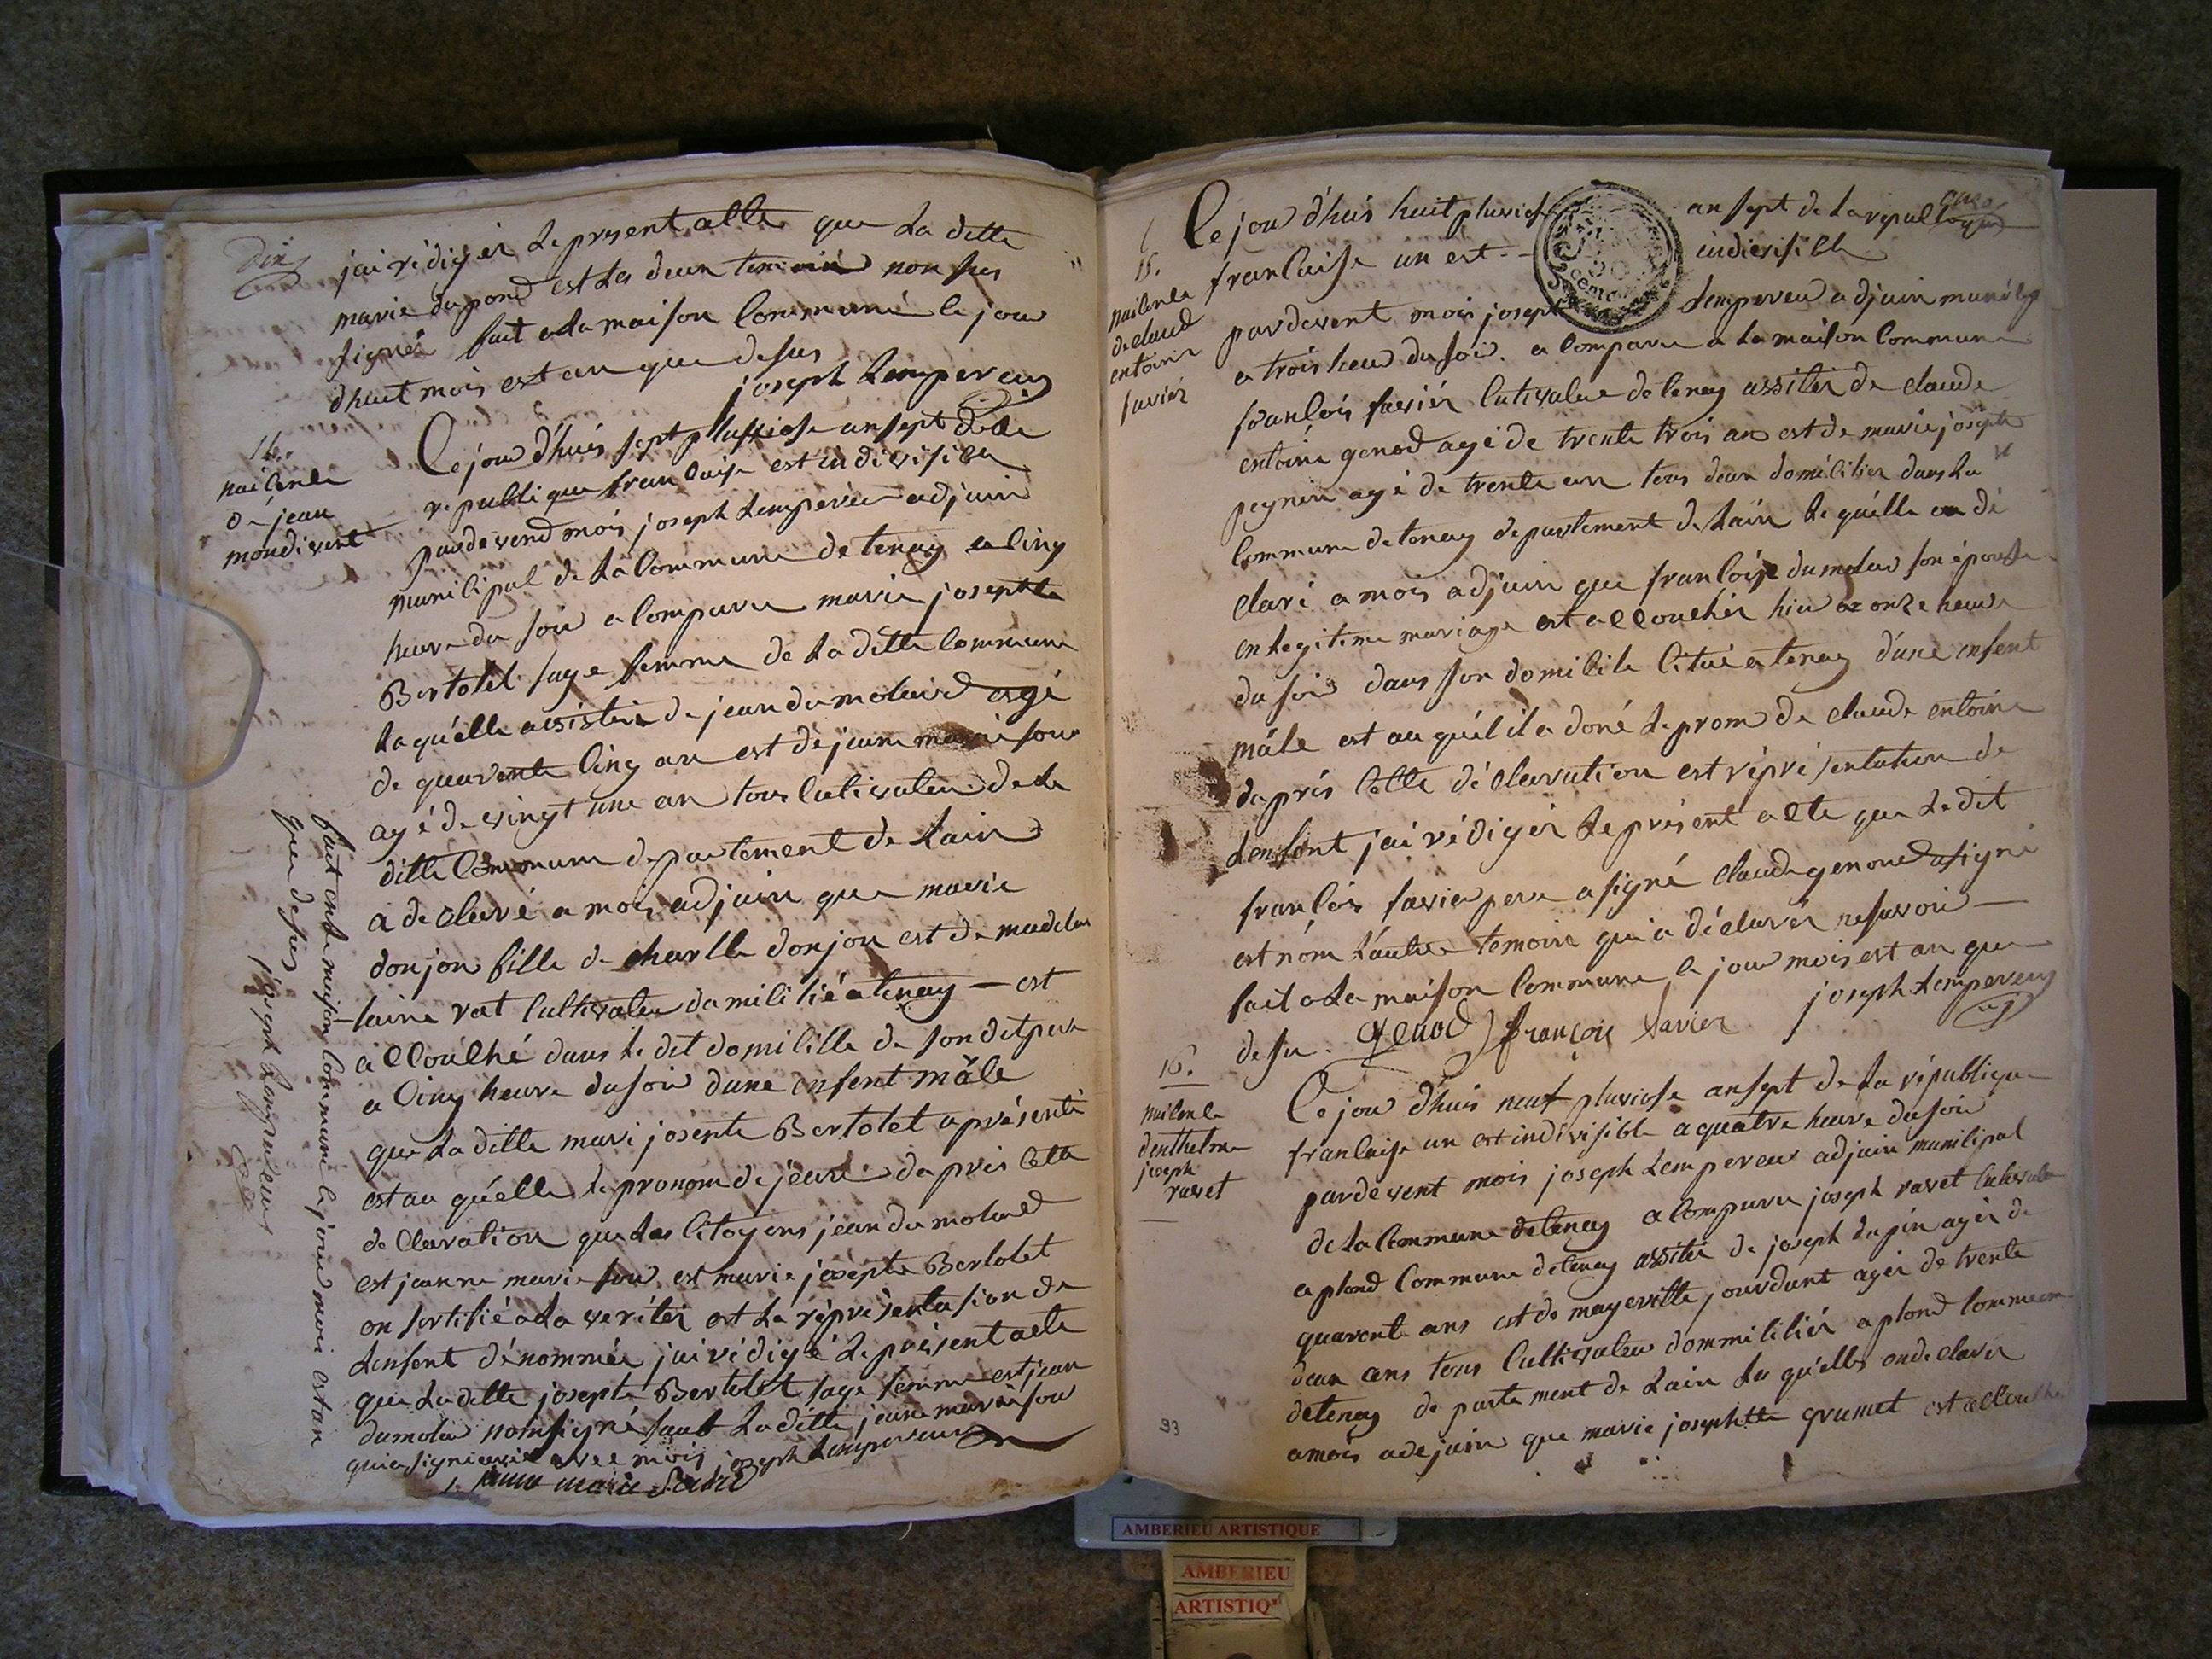 jai rédigér le present alte que La ditte
marie dupond est Les deux temoint non sus
signér fait a La maison Commune le jour
dheut mois est an que desus
joseph Lempereur
14.
naicence
de jean
mondivent
Ce jou d'huis sept pluviose an sept de La
republique francaise est indivisible
pardevend mois joseph Lempereur adjuin
municipal de La Commune de tenay a cinq
heure du soir a Comparue marie josephte
Bertolet sage femme de La ditte Commune
La quélle assistée de jean dumolard agé
de quarente cinq an est de jeanne marie
agé de vingt une an tous Cultivaleur de La
ditte Commune departement de Lain
a declaré a mois adjuin que marie
donjon fille de charlle donjon est de
vat Cultivaleur domilitié a tenay — est
a llouché dans le dit domilille de son dit pere
a Cinq heure du soir dune enfent mâle
que La ditte mari josente Bertolet a présenté
est au quélle le pronom de jean da pris Cette
declaration que Les Citoyens jean du molard
est jeanne marie est marie josepte Bertolet
on sertifié a La veritér est La réprésentasion de
Lenfent dénommée jai rédigé le présent acte
que La ditte josepte Bertolet sage femme est jean
dumolar nom signé sauf La ditte jeanne marie
qui a signé avec mois joseph Lempereur
fait en La maison Commune le jour mois est an
que desus
joseph Lempereur
15.
naicence
de claud
entoine
savier
Ce jou d'huis huit pluviose an sept de La republique
francaise un est indivisible
pardevent mois joseph Lempereur adjuin municip
a trois heure du soir a Comparue a La maison Commune
françois savier Cultivaleur de tenay assiter de claude
entoine genod agé de trente trois an est de marie josepte
peynin agé de trente an tous deux domilitier dans La
Commune de tenay departement de Lain Le quélle on dé
claré a mois adjuin que françoise dumolar son épouse
en legitime mariage est allouchér hier a onze heure
du soir dans son domilile Litué a tenay d'une enfent
mâle est au quél il a doné le prom de claude entoine
da prés Cette déclaration est réprésentation de
Lenfent jai rédigér Le présent alte que Le dit
françois savier pere a signé claude genoud a signé
est nom L'autre temoin qui a déclarér ne savoir —
fait a La maison Commune le jour mois est an que
desu. genod françois Xavier joseph Lempereur
16.
naicence
denthelme
joseph
ravet
Ce jou d'huis neuf pluviose an sept de La république
francaise un est indivisible a quatre heure du soir
pardevent mois joseph Lempereur adjuin municipal
de La Commune de tenay a Comparu joseph ravet Cultivaleur
a plond Commune de tenay assiter de joseph dupin agér de
quarente ans est de jourdant agér de trente
deux ans tous Cultivaleur dommililiér a plond Commune
de tenay departement de Lain La quélles on declarér
a mois adejuin que marie josephtte grumet est allouche
93
AMBERIEU ARTISTIQUE
AMBERIEU
ARTISTIQ